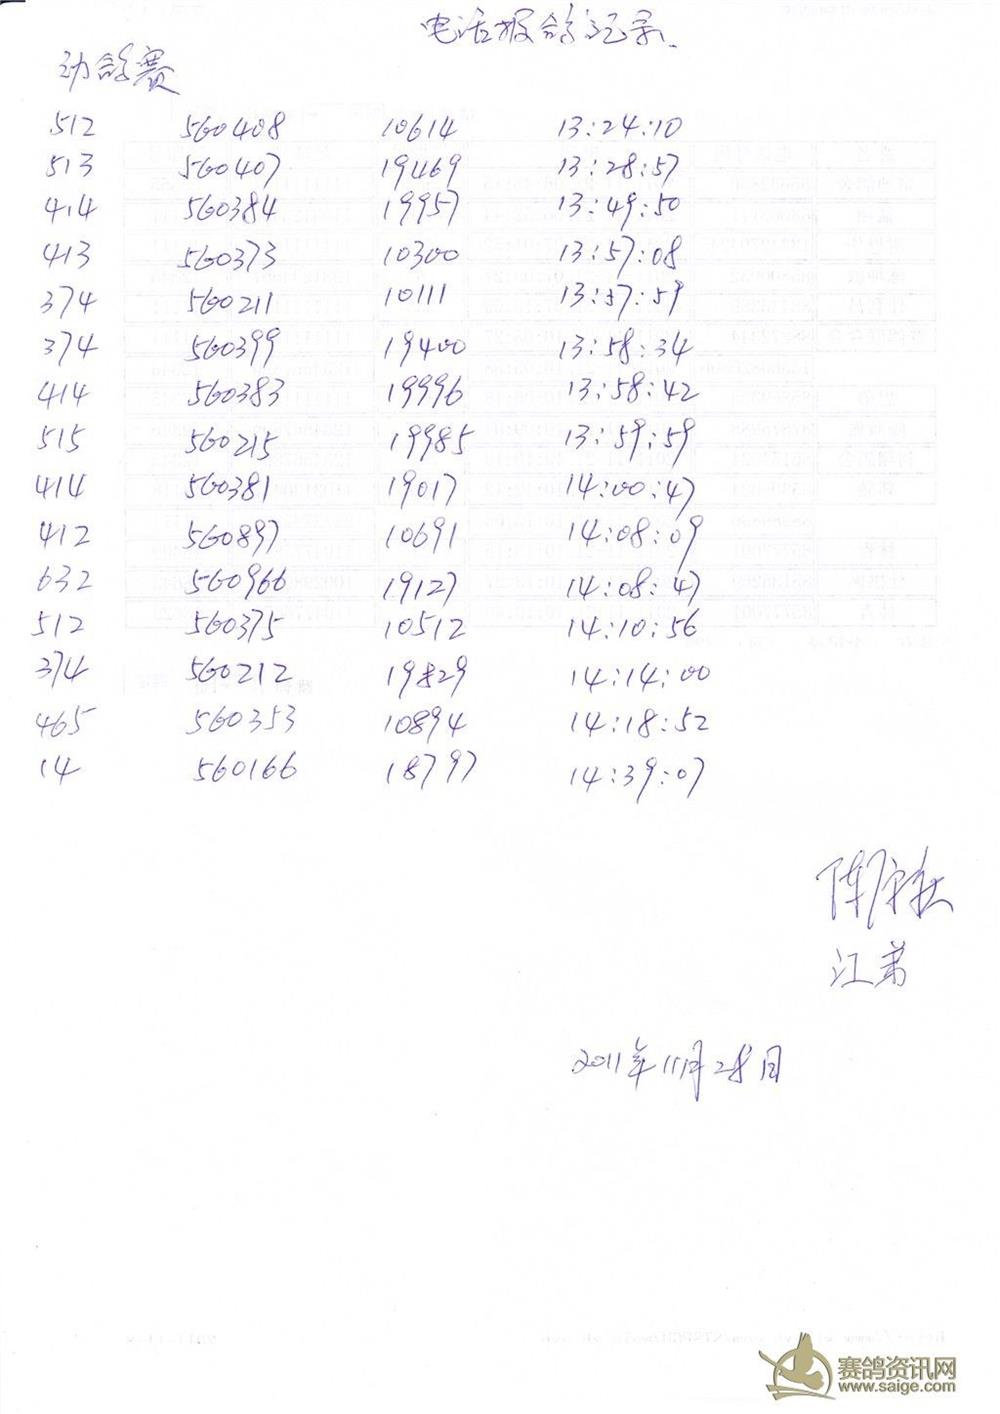 电话报鸽记录
幼鸽赛
512 560408 10614 13:24:10
513 560407 19469 13:28:57
414 560384 19957 13:49:50
413 560373 10300 13:57:08
374 560211 10111 13:57:59
374 560399 19400 13:58:34
414 560383 19996 13:58:42
515 560215 19985 13:59:59
414 560381 19017 14:00:47
412 560897 10691 14:08:09
632 560966 19127 14:08:47
512 560375 10512 14:10:56
374 560212 19829 14:14:00
465 560353 10894 14:18:52
14 560166 18797 14:39:07
陈
江
2011年11月28日
赛鸽资讯网
www.saige.com